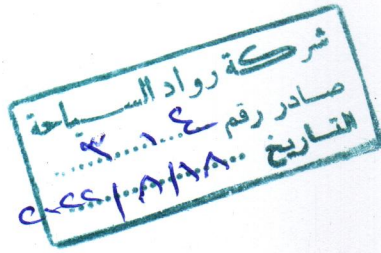 شركة رواد السياحة
صادر رقم ٣٠١٤
التاريخ ٢٠٢٢/٨/١٨